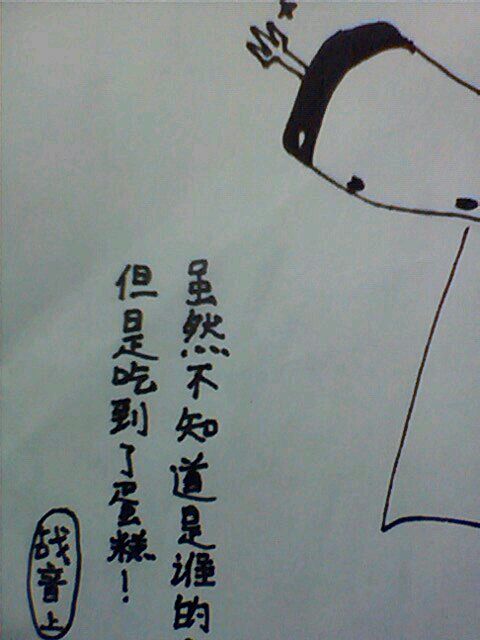 虽然不知道是谁的
但是吃到了蛋糕！
战音上